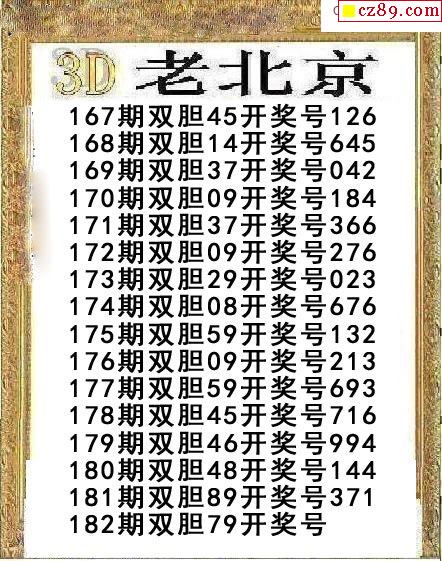 cz89.com
3D 老北京
167期双胆45开奖号126
168期双胆14开奖号645
169期双胆37开奖号042
170期双胆09开奖号184
171期双胆37开奖号366
172期双胆09开奖号276
173期双胆29开奖号023
174期双胆08开奖号676
175期双胆59开奖号132
176期双胆09开奖号213
177期双胆59开奖号693
178期双胆45开奖号716
179期双胆46开奖号994
180期双胆48开奖号144
181期双胆89开奖号371
182期双胆79开奖号